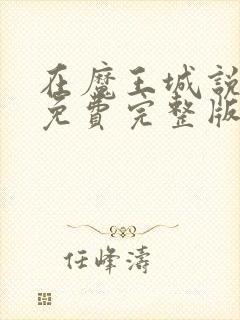 在魔王城說
免費完整版
任峰濤